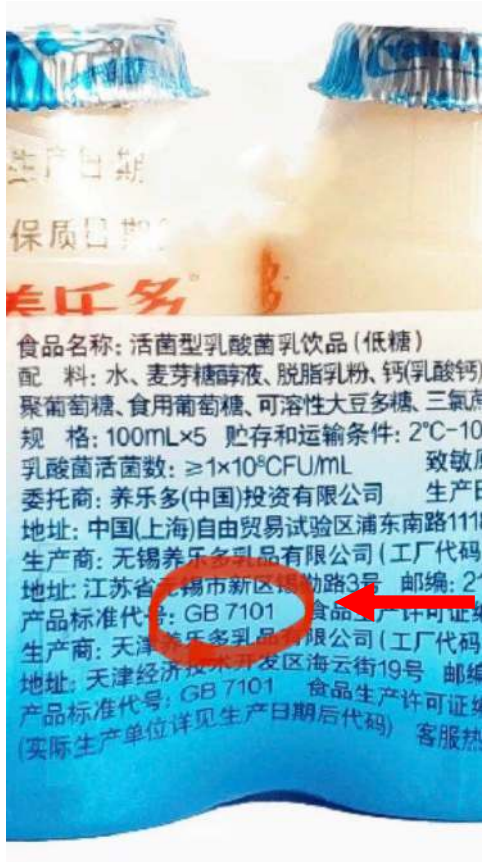 生产日期
保质日期
养乐多
食品名称：活菌型乳酸菌乳饮品(低糖)
配 料：水、麦芽糖醇液、脱脂乳粉、钙(乳酸钙)
聚葡萄糖、食用葡萄糖、可溶性大豆多糖、三氯蔗
规 格：100mL×5 贮存和运输条件：2℃-10
乳酸菌活菌数：≥1×10⁸CFU/mL 致敏原
委托商：养乐多(中国)投资有限公司 生产日
地址：中国(上海)自由贸易试验区浦东南路1118
生产商：无锡养乐多乳品有限公司(工厂代码
地址：江苏省无锡市新区锡勤路3号 邮编：21
产品标准代号：GB 7101 食品生产许可证编
生产商：天津养乐多乳品有限公司(工厂代码
地址：天津经济技术开发区海云街19号 邮编
产品标准代号：GB 7101 食品生产许可证编
(实际生产单位详见生产日期后代码) 客服热